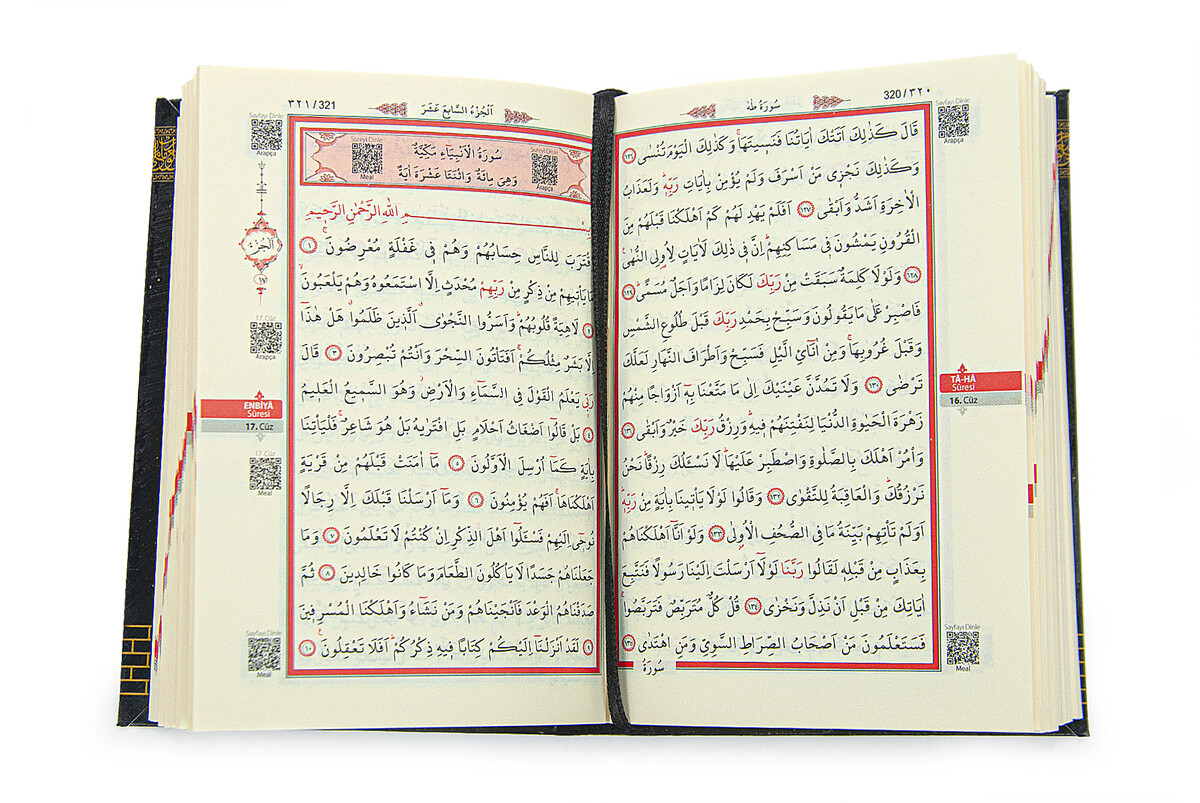 320/٣٢٠
سُورَةُ طٰهٰ
Sayfayı Dinle
Arapça
قَالَ كَذٰلِكَ اَتَتْكَ اٰيَاتُنَا فَنَسِيتَهَاۚ وَكَذٰلِكَ الْيَوْمَ تُنْسٰى ﴿١٢٦﴾
وَكَذٰلِكَ نَجْزٖي مَنْ اَسْرَفَ وَلَمْ يُؤْمِنْ بِاٰيَاتِ رَبِّهٖۜ وَلَعَذَابُ
الْاٰخِرَةِ اَشَدُّ وَاَبْقٰى ﴿١٢٧﴾ اَفَلَمْ يَهْدِ لَهُمْ كَمْ اَهْلَكْنَا قَبْلَهُمْ مِنَ
الْقُرُونِ يَمْشُونَ فٖي مَسَاكِنِهِمْۜ اِنَّ فٖي ذٰلِكَ لَاٰيَاتٍ لِاُولِي النُّهٰى۟
﴿١٢٨﴾ وَلَوْلَا كَلِمَةٌ سَبَقَتْ مِنْ رَبِّكَ لَكَانَ لِزَامًا وَاَجَلٌ مُسَمًّىۜ ﴿١٢٩﴾
فَاصْبِرْ عَلٰى مَا يَقُولُونَ وَسَبِّحْ بِحَمْدِ رَبِّكَ قَبْلَ طُلُوعِ الشَّمْسِ
وَقَبْلَ غُرُوبِهَاۚ وَمِنْ اٰنَآئِ الَّيْلِ فَسَبِّحْ وَاَطْرَافَ النَّهَارِ لَعَلَّكَ
تَرْضٰى ﴿١٣٠﴾ وَلَا تَمُدَّنَّ عَيْنَيْكَ اِلٰى مَا مَتَّعْنَا بِهٖٓ اَزْوَاجًا مِنْهُمْ
زَهْرَةَ الْحَيٰوةِ الدُّنْيَا لِنَفْتِنَهُمْ فٖيهِۜ وَرِزْقُ رَبِّكَ خَيْرٌ وَاَبْقٰى ﴿١٣١﴾
وَأْمُرْ اَهْلَكَ بِالصَّلٰوةِ وَاصْطَبِرْ عَلَيْهَاۜ لَا نَسْـَٔلُكَ رِزْقًاۜ نَحْنُ
نَرْزُقُكَۜ وَالْعَاقِبَةُ لِلتَّقْوٰى ﴿١٣٢﴾ وَقَالُوا لَوْلَا يَأْتٖينَا بِاٰيَةٍ مِنْ رَبِّهٖۜ
اَوَلَمْ تَأْتِهِمْ بَيِّنَةُ مَا فِي الصُّحُفِ الْاُولٰى ﴿١٣٣﴾ وَلَوْ اَنَّٓا اَهْلَكْنَاهُمْ
بِعَذَابٍ مِنْ قَبْلِهٖ لَقَالُوا رَبَّنَا لَوْلَٓا اَرْسَلْتَ اِلَيْنَا رَسُولًا فَنَتَّبِعَ
اٰيَاتِكَ مِنْ قَبْلِ اَنْ نَذِلَّ وَنَخْزٰى ﴿١٣٤﴾ قُلْ كُلٌّ مُتَرَبِّصٌ فَتَرَبَّصُواۚ
فَسَتَعْلَمُونَ مَنْ اَصْحَابُ الصِّرَاطِ السَّوِيِّ وَمَنِ اهْتَدٰى ﴿١٣٥﴾
سُورَةُ
TÂ-HÂ
Sûresi
16. Cüz
Sayfayı Dinle
Meal
٣٢١/321
اَلْجُزْءُ السَّابِعَ عَشَرَ
Sayfayı Dinle
Arapça
Sûreyi Dinle
Meal
Sûreyi Dinle
Arapça
سُورَةُ الْاَنْبِيَاءِ مَكِّيَّةٌ
وَهِيَ مِائَةٌ وَاثْنَتَا عَشْرَةَ اٰيَةً
بِسْمِ اللّٰهِ الرَّحْمٰنِ الرَّحٖيمِ
اِقْتَرَبَ لِلنَّاسِ حِسَابُهُمْ وَهُمْ فٖي غَفْلَةٍ مُعْرِضُونَۚ ﴿١﴾
مَا يَأْتٖيهِمْ مِنْ ذِكْرٍ مِنْ رَبِّهِمْ مُحْدَثٍ اِلَّا اسْتَمَعُوهُ وَهُمْ يَلْعَبُونَۙ
﴿٢﴾ لَاهِيَةً قُلُوبُهُمْۜ وَاَسَرُّوا النَّجْوٰىۗ اَلَّذٖينَ ظَلَمُواۗ هَلْ هٰذَٓا
اِلَّا بَشَرٌ مِثْلُكُمْۚ اَفَتَأْتُونَ السِّحْرَ وَاَنْتُمْ تُبْصِرُونَ ﴿٣﴾ قَالَ
رَبّٖي يَعْلَمُ الْقَوْلَ فِي السَّمَٓاءِ وَالْاَرْضِۘ وَهُوَ السَّمٖيعُ الْعَلٖيمُ
﴿٤﴾ بَلْ قَالُٓوا اَضْغَاثُ اَحْلَامٍ بَلِ افْتَرٰيهُ بَلْ هُوَ شَاعِرٌۚ فَلْيَأْتِنَا
بِاٰيَةٍ كَمَٓا اُرْسِلَ الْاَوَّلُونَ ﴿٥﴾ مَٓا اٰمَنَتْ قَبْلَهُمْ مِنْ قَرْيَةٍ
اَهْلَكْنَاهَاۚ اَفَهُمْ يُؤْمِنُونَ ﴿٦﴾ وَمَٓا اَرْسَلْنَا قَبْلَكَ اِلَّا رِجَالًا
نُوحٖٓي اِلَيْهِمْ فَسْـَٔلُٓوا اَهْلَ الذِّكْرِ اِنْ كُنْتُمْ لَا تَعْلَمُونَ ﴿٧﴾ وَمَا
جَعَلْنَاهُمْ جَسَدًا لَا يَأْكُلُونَ الطَّعَامَ وَمَا كَانُوا خَالِدٖينَ ﴿٨﴾ ثُمَّ
صَدَقْنَاهُمُ الْوَعْدَ فَاَنْجَيْنَاهُمْ وَمَنْ نَشَٓاءُ وَاَهْلَكْنَا الْمُسْرِفٖينَ
﴿٩﴾ لَقَدْ اَنْزَلْنَٓا اِلَيْكُمْ كِتَابًا فٖيهِ ذِكْرُكُمْۜ اَفَلَا تَعْقِلُونَ۟ ﴿١٠﴾
اَلْجُزْءُ
١٧
17. Cüz
Arapça
ENBİYÂ
Sûresi
17. Cüz
17. Cüz
Meal
Sayfayı Dinle
Meal